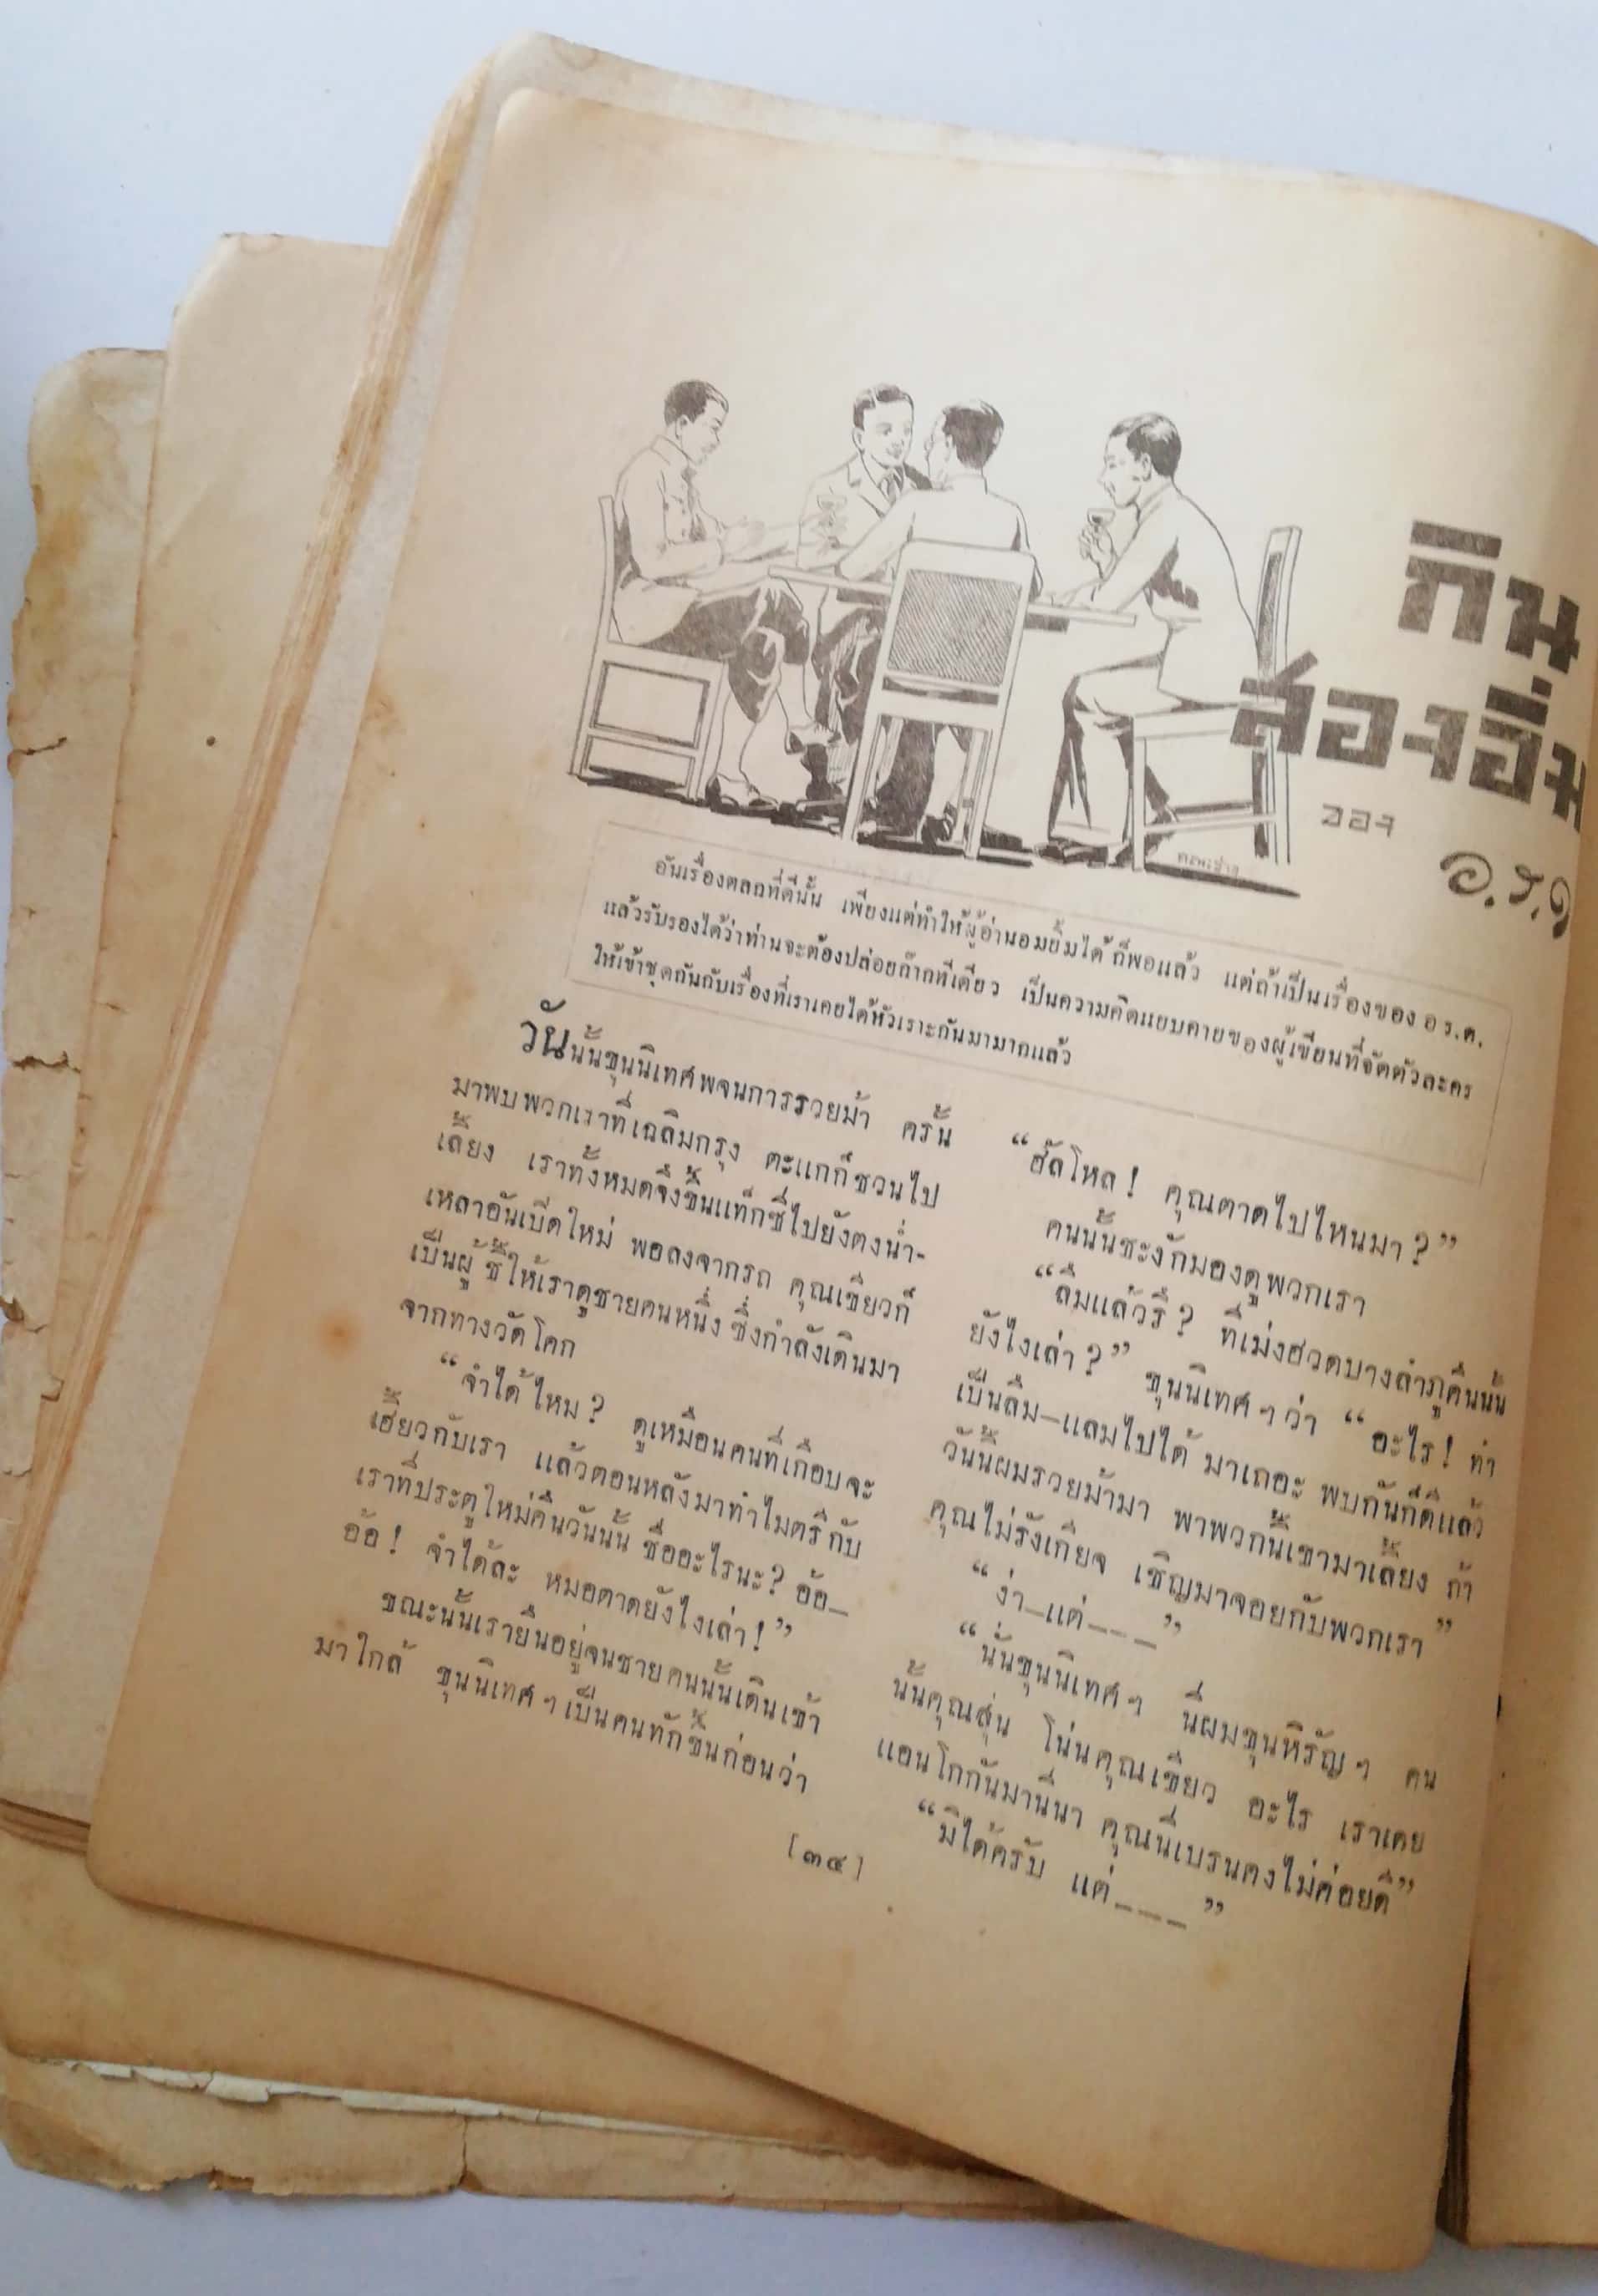 กิน
สองอิ่ม
ของ
อ.ร.ด
อันเรื่องตลกที่ดีนั้น เพียงแต่ทำให้ผู้อ่านอมยิ้มได้ ก็พอแล้ว แต่ถ้าเป็นเรื่องของ อ ร.ด.
แล้วรับรองได้ว่าท่านจะต้องปล่อยก๊ากทีเดียว เป็นความคิดแยบคายของผู้เขียนที่จัดตัวละคร
ให้เข้าชุดกันกับเรื่องที่เราเคยได้หัวเราะกันมามากแล้ว
วันนั้นขุนนิเทศพจนการรวยม้า ครั้น
มาพบพวกเราที่เฉลิมกรุง ตะแกก็ชวนไป
เลี้ยง เราทั้งหมดจึงขึ้นแท็กซี่ไปยังตงน่ำ-
เหลาอันเปิดใหม่ พอลงจากรถ คุณเขียวก็
เป็นผู้ ชี้ให้เราดูชายคนหนึ่ง ซึ่งกำลังเดินมา
จากทางวัดโคก
“จำได้ไหม? ดูเหมือนคนที่เกือบจะ
เฮี้ยวกับเรา แล้วตอนหลังมาทำไมตรีกับ
เราที่ประตูใหม่คืนวันนั้น ชื่ออะไรนะ? อ้อ—
อ้อ! จำได้ละ หมอตาดยังไงเล่า!”
ขณะนั้นเรายืนอยู่จนชายคนนั้นเดินเข้า
มาใกล้ ขุนนิเทศ ๆ เป็นคนทักขึ้นก่อนว่า
“ฮัลโหล! คุณตาดไปไหนมา?”
คนนั้นชะงักมองดูพวกเรา
“ลืมแล้วรึ? ที่เม่งฮวดบางลำภูคืนนั้น
ยังไงเล่า?” ขุนนิเทศ ๆ ว่า “อะไร! ทำ
เป็นลืม—แลมไปได้ มาเถอะ พบกันก็ดีแล้ว
วันนี้ผมรวยม้ามา พาพวกนี้เขามาเลี้ยง ถ้า
คุณไม่รังเกียจ เชิญมาจอยกับพวกเรา”
“ง่า—แต่———”
“นั่นขุนนิเทศ ๆ นี่ผมขุนหิรัญ ๆ คน
นั้นคุณสุ่น โน่นคุณเขียว อะไร เราเคย
แอนโกกันมานี่นา คุณนี่เบรนคงไม่ค่อยดี”
“มิได้ครับ แต่———”
[๓๔]